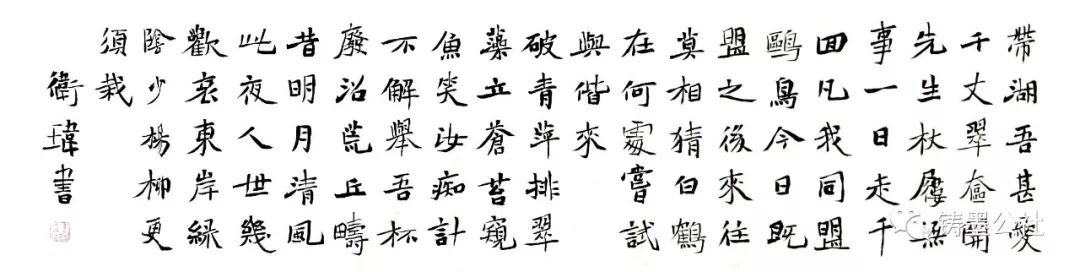 帶湖吾甚愛
千丈翠奩開
先生杖屨無
事一日走千
回凡我同盟
鷗鳥今日既
盟之後來往
莫相猜白鶴
在何處嘗試
與偕來
破青萍排翠
藻立蒼苔窺
魚笑汝痴計
不解舉吾杯
廢沼荒丘疇
昔明月清風
此夜人世幾
歡哀東岸綠
陰少楊柳更
須栽
衛瑋書
铸墨公社